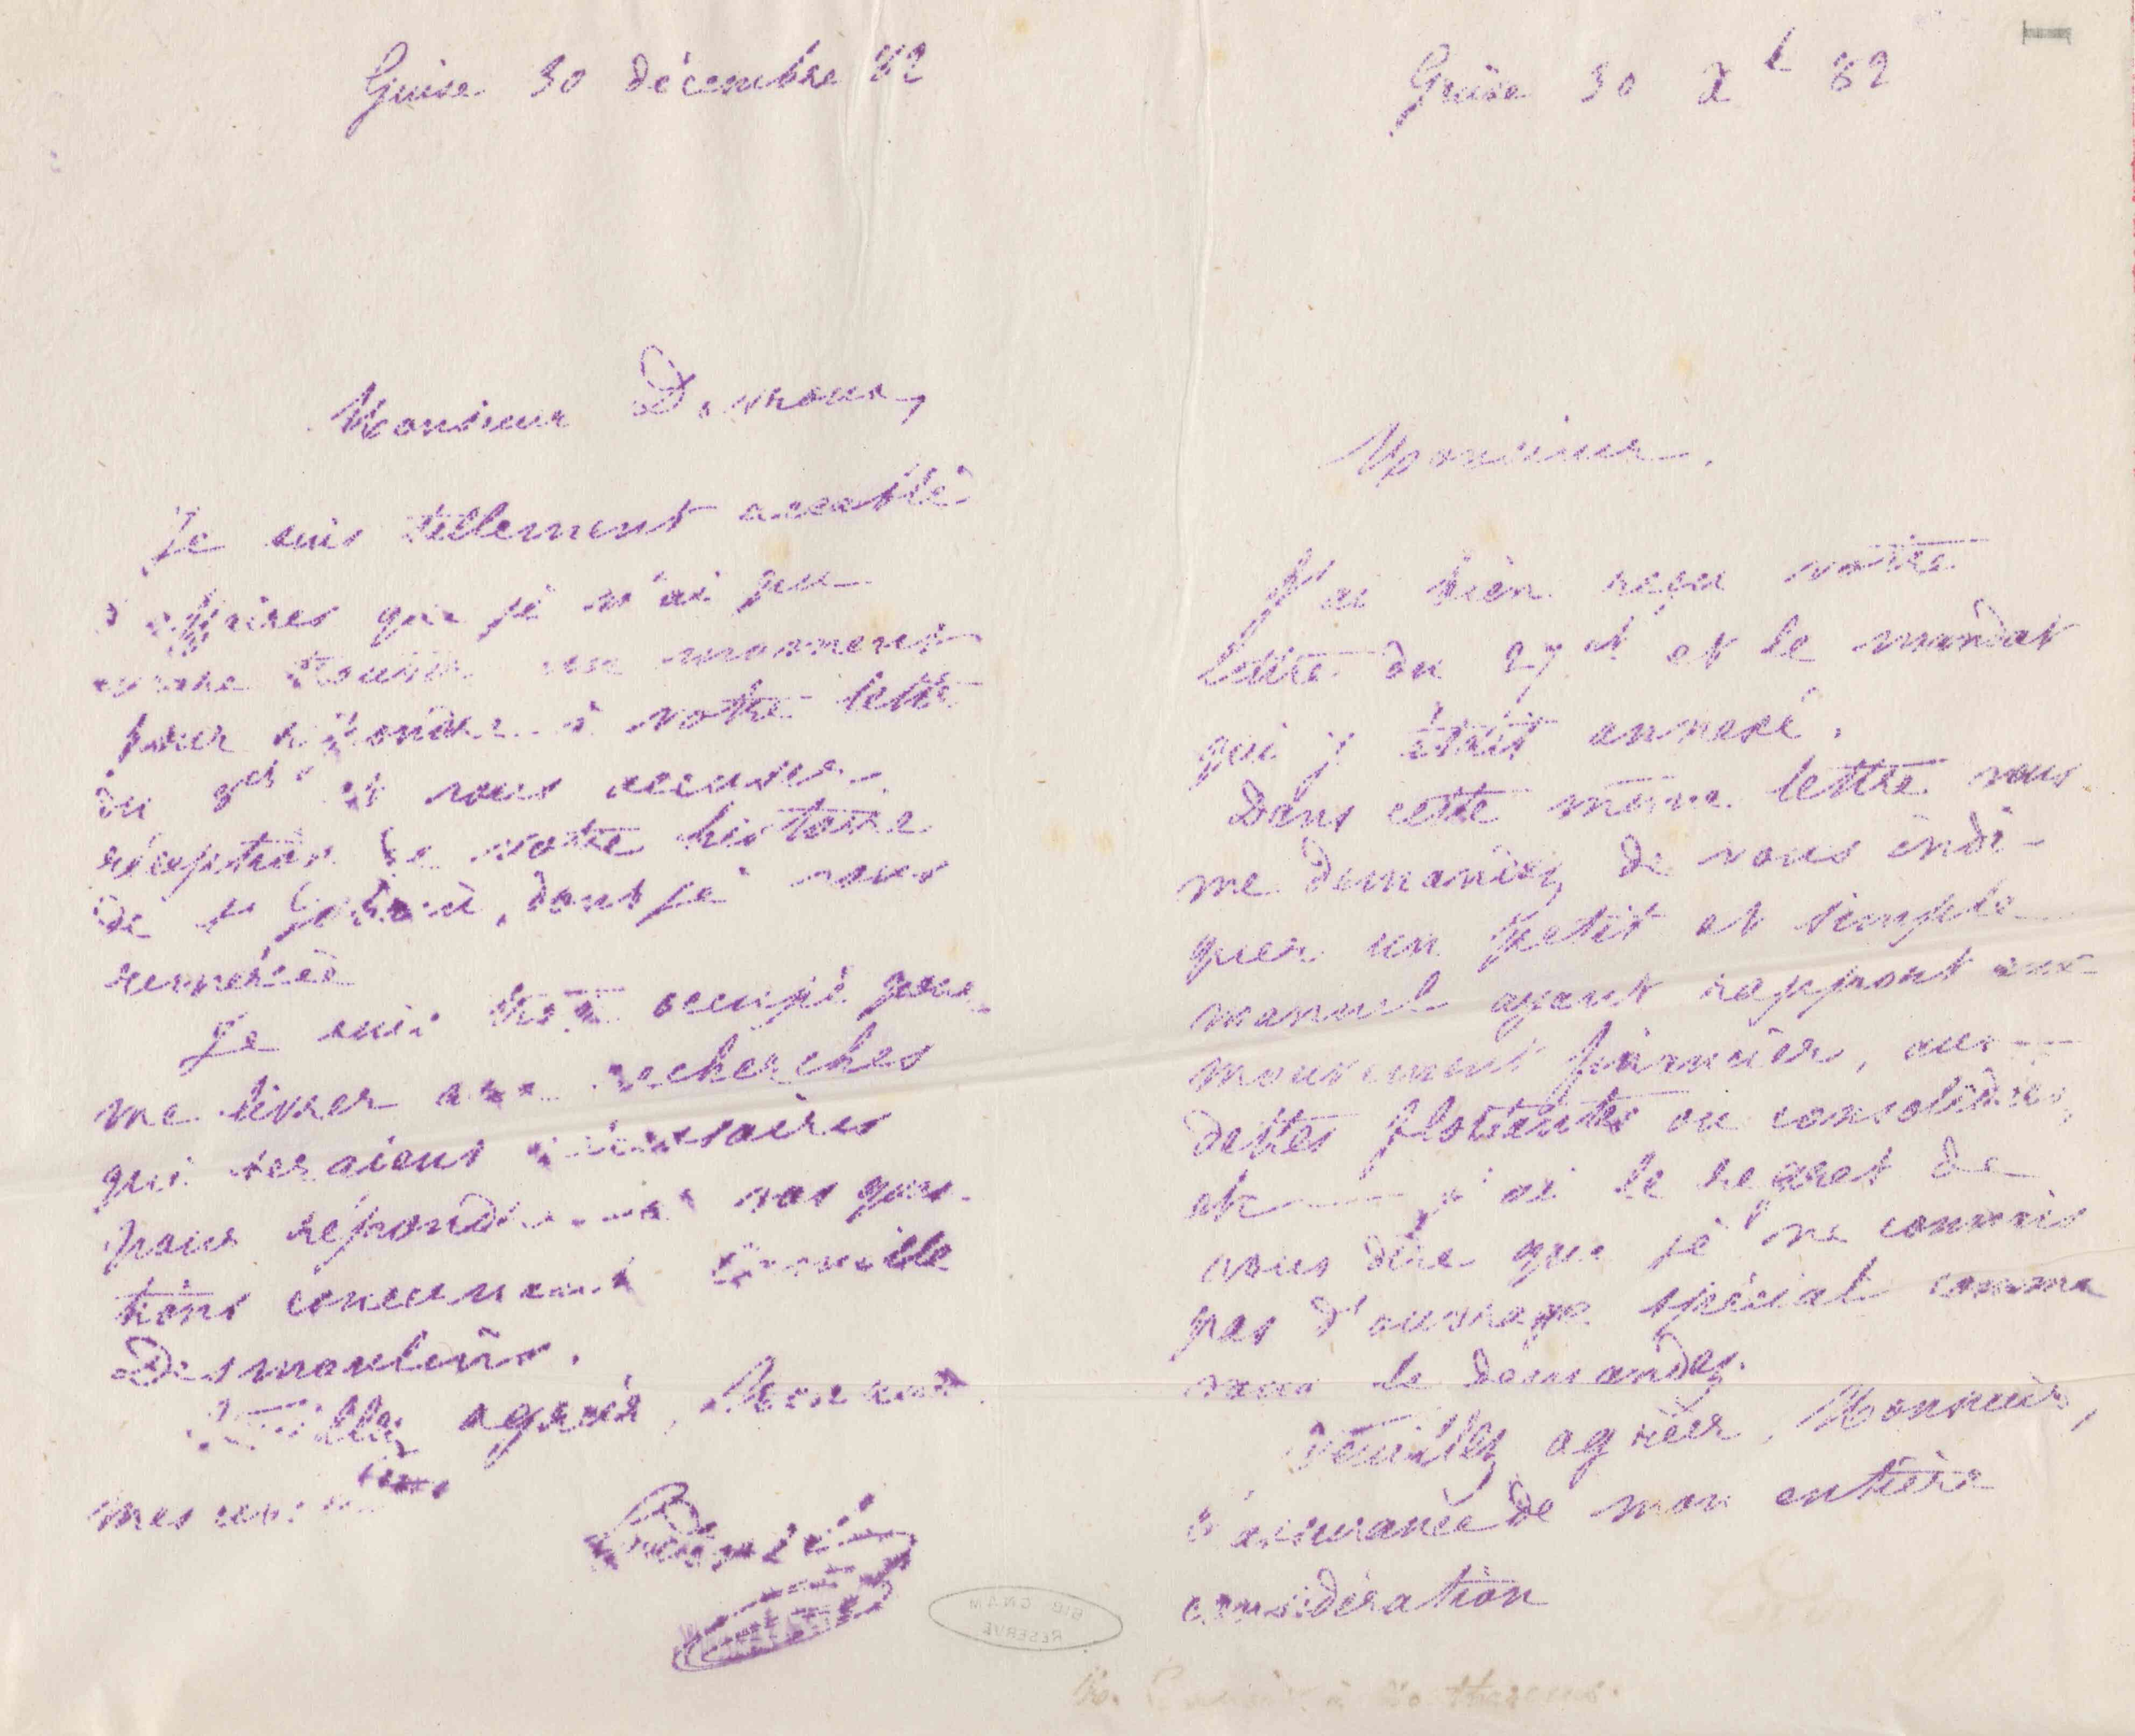 Guise 30 décembre 82
Monsieur
Je suis tellement accablé
d'affaires que je n'ai pu
trouver un moment
pour répondre à votre lettre
du et vous accuser
réception de votre histoire
de St dont je vous
remercie
Je suis trop occupé pour
me livrer aux recherches
qui seraient nécessaires
pour répondre à vos ques-
tions concernant Camille
Desmoulins.
Veuillez agréer, Monsieur
mes
Godin
Guise 30 Xb 82
Monsieur,
J'ai bien reçu votre
lettre du 27 ct et le mandat
qui y était annexé.
Dans cette même lettre vous
me demandez de vous indi-
quer un petit et simple
manuel ayant rapport aux
mouvement financier, aux
dettes flottantes ou consolidées,
etc j'ai le regret de
vous dire que je ne connais
pas d'ouvrage spécial comme
vous le demandez.
Veuillez agréer, Monsieur,
l'assurance de mon entière
considération
BIB CNAM
RESERVE